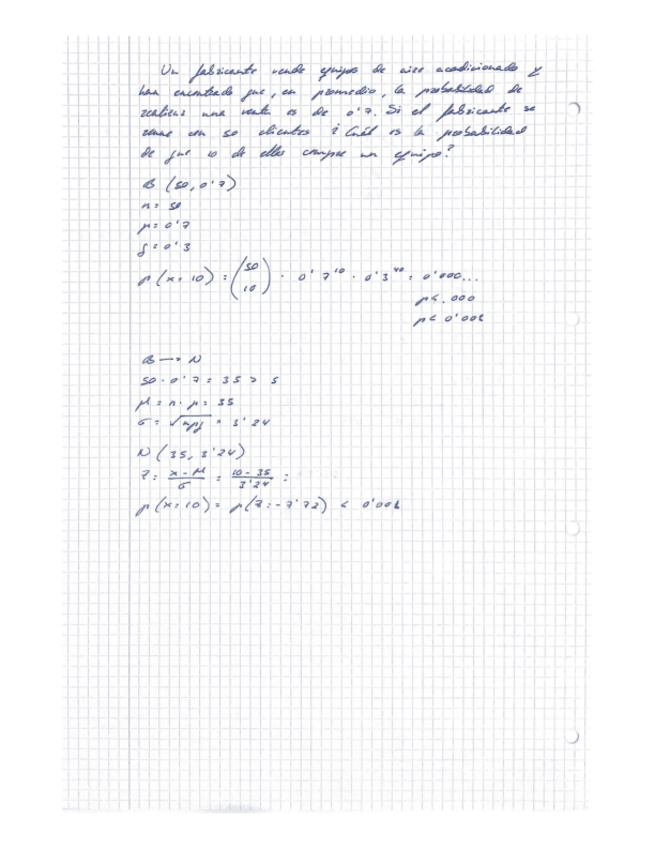 Un fabricante vende equipos de aire acodicionado y
han encontrado que, en promedio, la probabilidad de
realizar una venta es de 0'7. Si el fabricante se
reune con 50 clientes ¿ Cuál es la probabilidad
de que 10 de ellos compre un equipo?
B (50, 0'7)
n = 50
p = 0'7
q = 0'3
p (x = 10) = (50 10) · 0'7¹⁰ · 0'3⁴⁰ = 0'000...
p < .000
p < 0'001
B → N
50 · 0'7 = 35 > 5
μ = n · p = 35
σ = √npq = 3'24
N (35, 3'24)
Z = x - μ / σ = 10 - 35 / 3'24 =
p (x = 10) = p (Z = -7'72) < 0'001